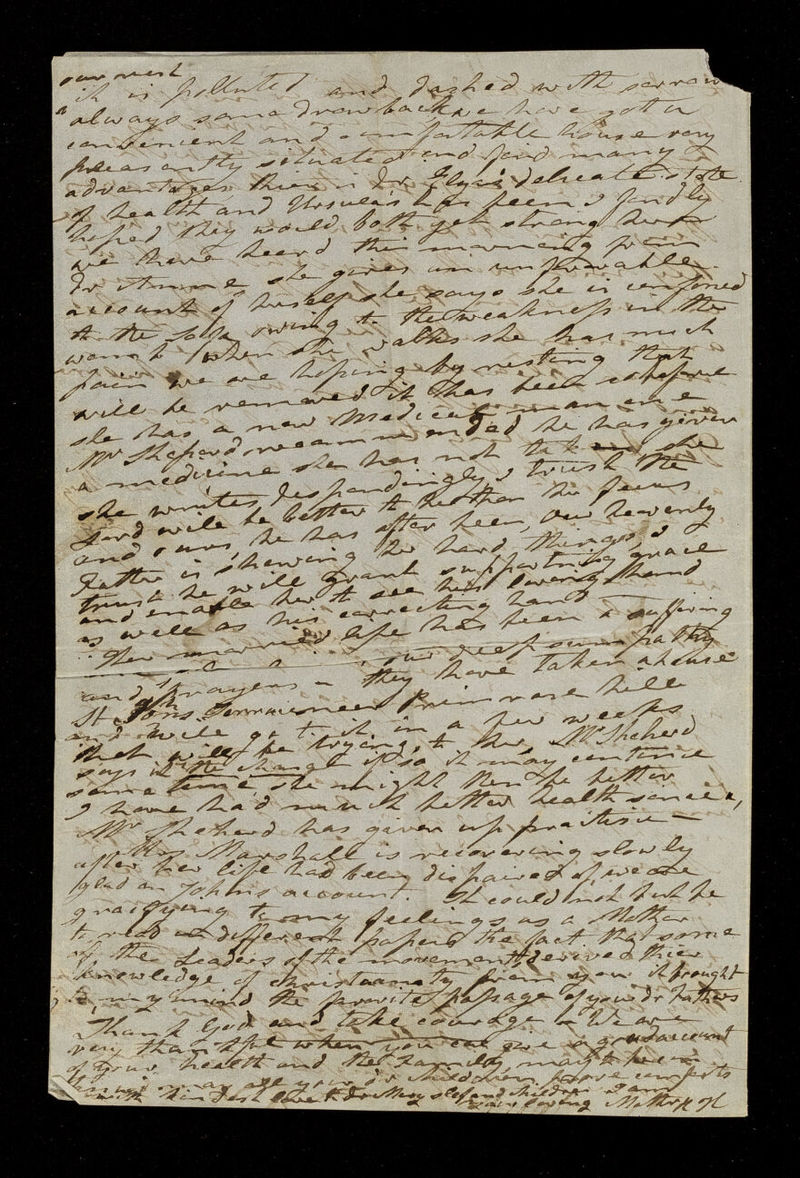 our nest
it is polluted and dashed with sorrow
always some drawback we have got a
convenient and comfortable house very
pleasantly situated and find many
advantages then in Dr Elyis delicate state
of health and Ursulas has been I fondly
hoped they would both get strong here
we have heard this morning from
Dr Anne she gives an unfavorable
account of herself she says she is confined
to the sofa owing to the weakness in the
womb when she walks she has much
pain we are hoping by resting that
will be removed it has been so before
she has a new Medical man one
Mr Shepherd recommended he has given
a medicine she has not taken she
she writes despondingly, I trust the
Lord will be better to her than her fears
and ours, he has often been, our heavenly
Father is shewing her hard things, I
trust he will grant supporting grace
and enable her to see his loving hand
as well as his correcting hand
Her married life has been a suffering
our deep sympathy
and prayers - they have taken a house
St Terrace near Primrose hill
and will go to it in a few weeks
that will be trying to her Mr Sheherd
says it the change if so it may continue
some time, she might then be better
I have had much better health since
Mr Sheherd has given up practise -
Mrs Marshall is recovering slowly
after her life had been dispaired of, we are
glad on Johns account. It could not but be
gratifying to my feelings as a Mother
to read in different papers the fact that some
of the Leaders of the movement derived their
knowledge of christianity from you it brought
to my mind the favorite passage of your dr Fathers
Thank God and take courage - We are
very thankful when you can give a good account
of your health and the family, might he
may all your dr children prove comforts
with this best love to dr Mary self and children I am
your loving Mother